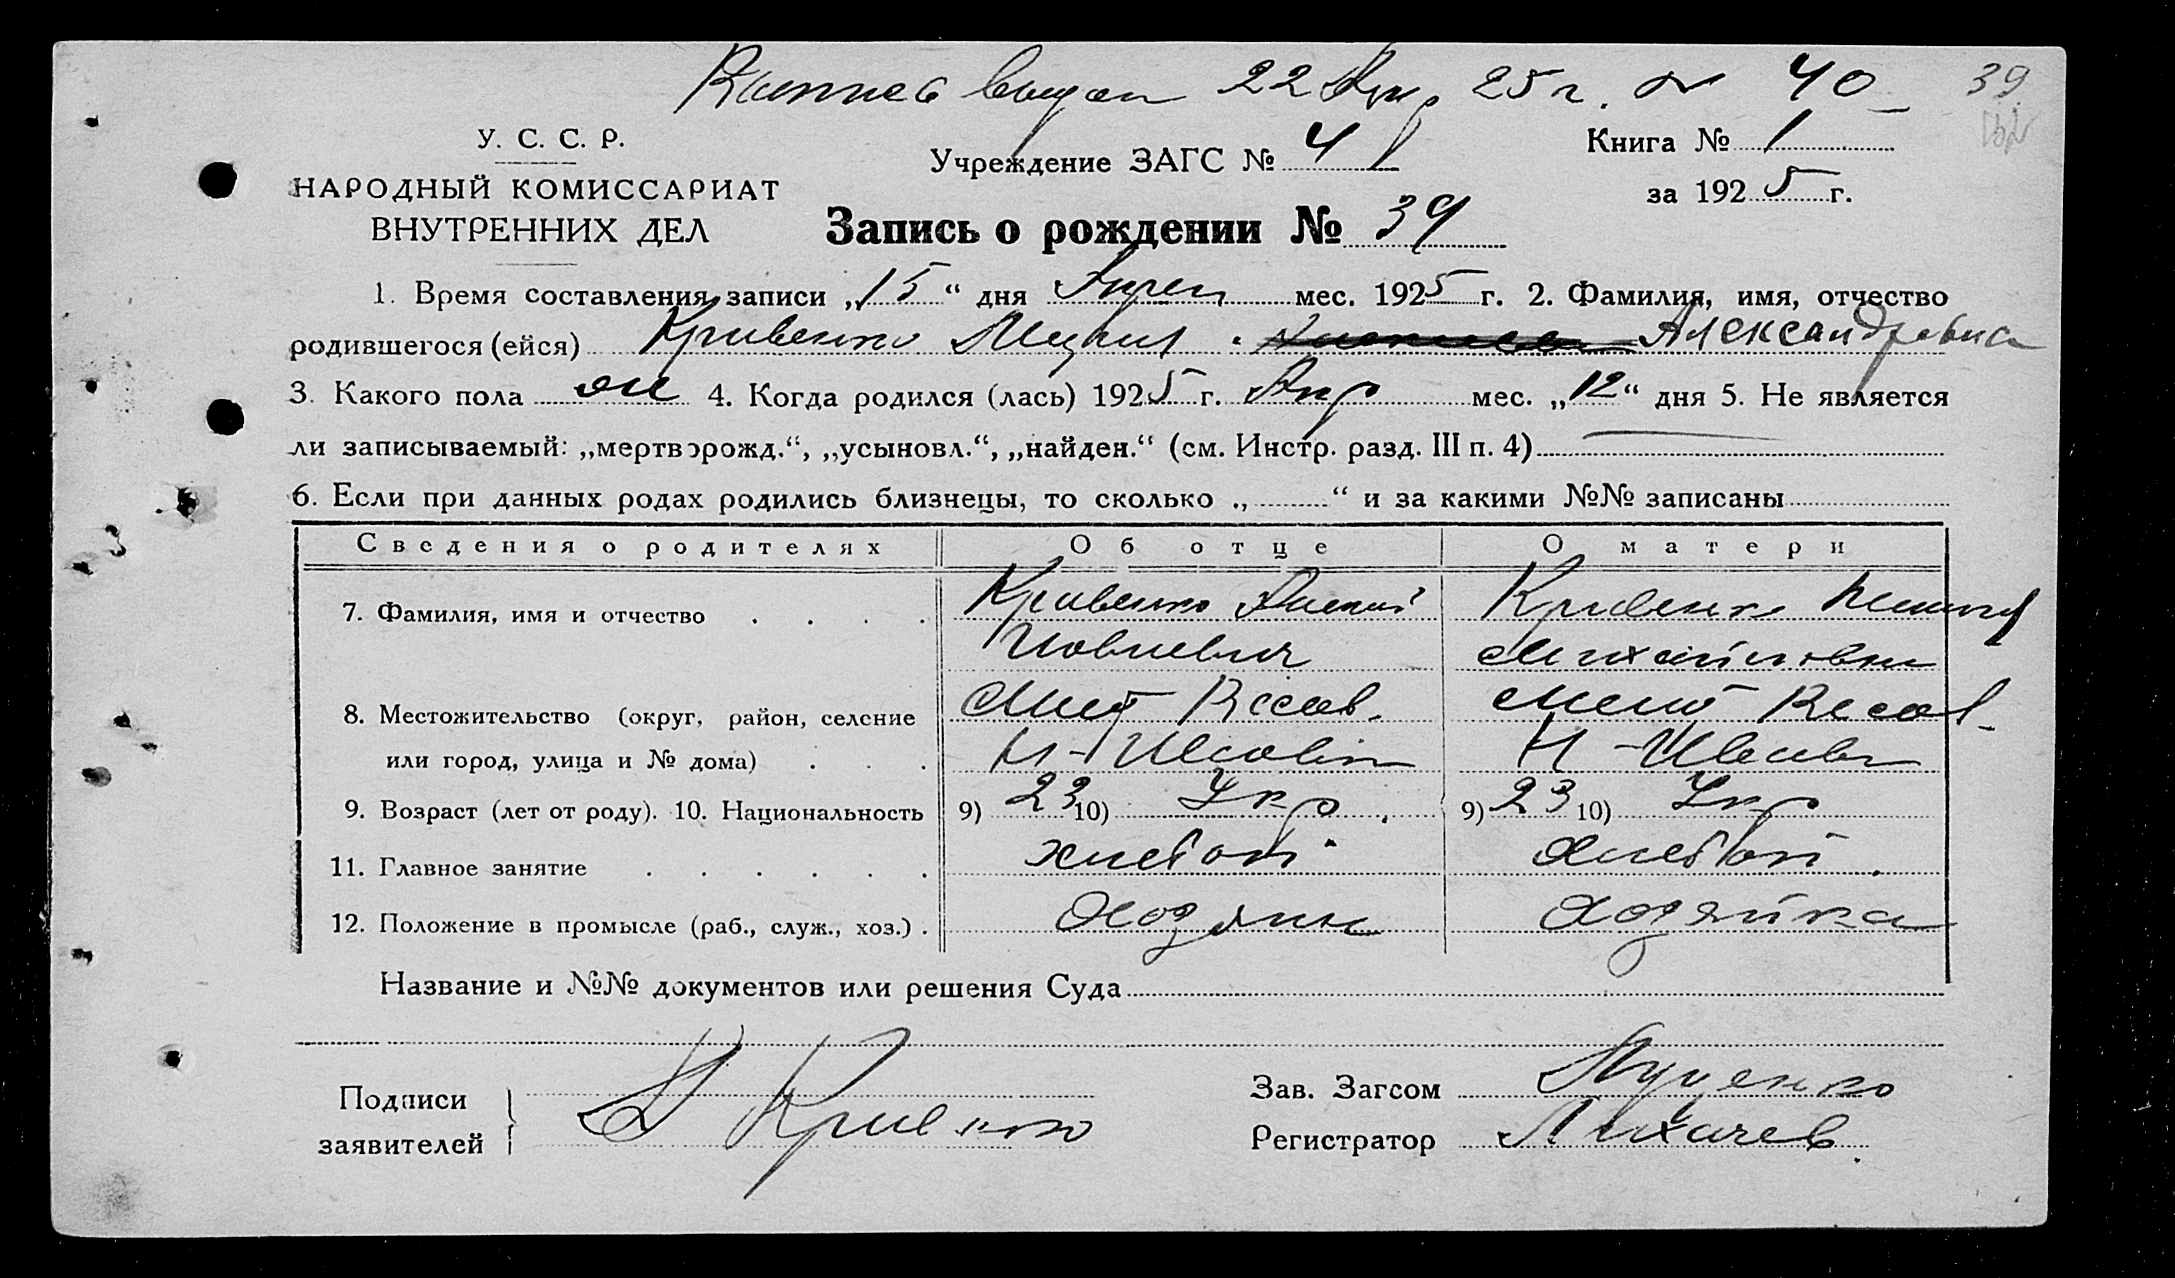 выдан 22 Апр. 25 г. № 40 39
У. С. С. Р.
НАРОДНЫЙ КОМИССАРИАТ
ВНУТРЕННИХ ДЕЛ
Учреждение ЗАГС № 4
Книга № 1
за 1925 г.
Запись о рождении № 39
1. Время составления записи „15“ дня Апрел мес. 1925 г. 2. Фамилия, имя, отчество
родившегося (ейся) Кривенко Александровна
3. Какого пола жен 4. Когда родился (лась) 1925 г. Апр мес. „12“ дня 5. Не является
ли записываемый: „мертворожд.“, „усыновл.“, „найден.“ (см. Инстр. разд. III п. 4)
6. Если при данных родах родились близнецы, то сколько „ “ и за какими №№ записаны
Сведения о родителях Об отце О матери
7. Фамилия, имя и отчество . . . . Кривенко Кривенко
Михайловна
8. Местожительство (округ, район, селение
или город, улица и № дома) . . .
9. Возраст (лет от роду). 10. Национальность 9) 23 10) Укр 9) 23 10) Укр
11. Главное занятие . . . . . . хлебоп. хлебоп.
12. Положение в промысле (раб., служ., хоз.) . Хозяин Хозяйка
Название и №№ документов или решения Суда
Подписи
заявителей
Кривенко
Зав. Загсом Луценко
Регистратор Лихачев